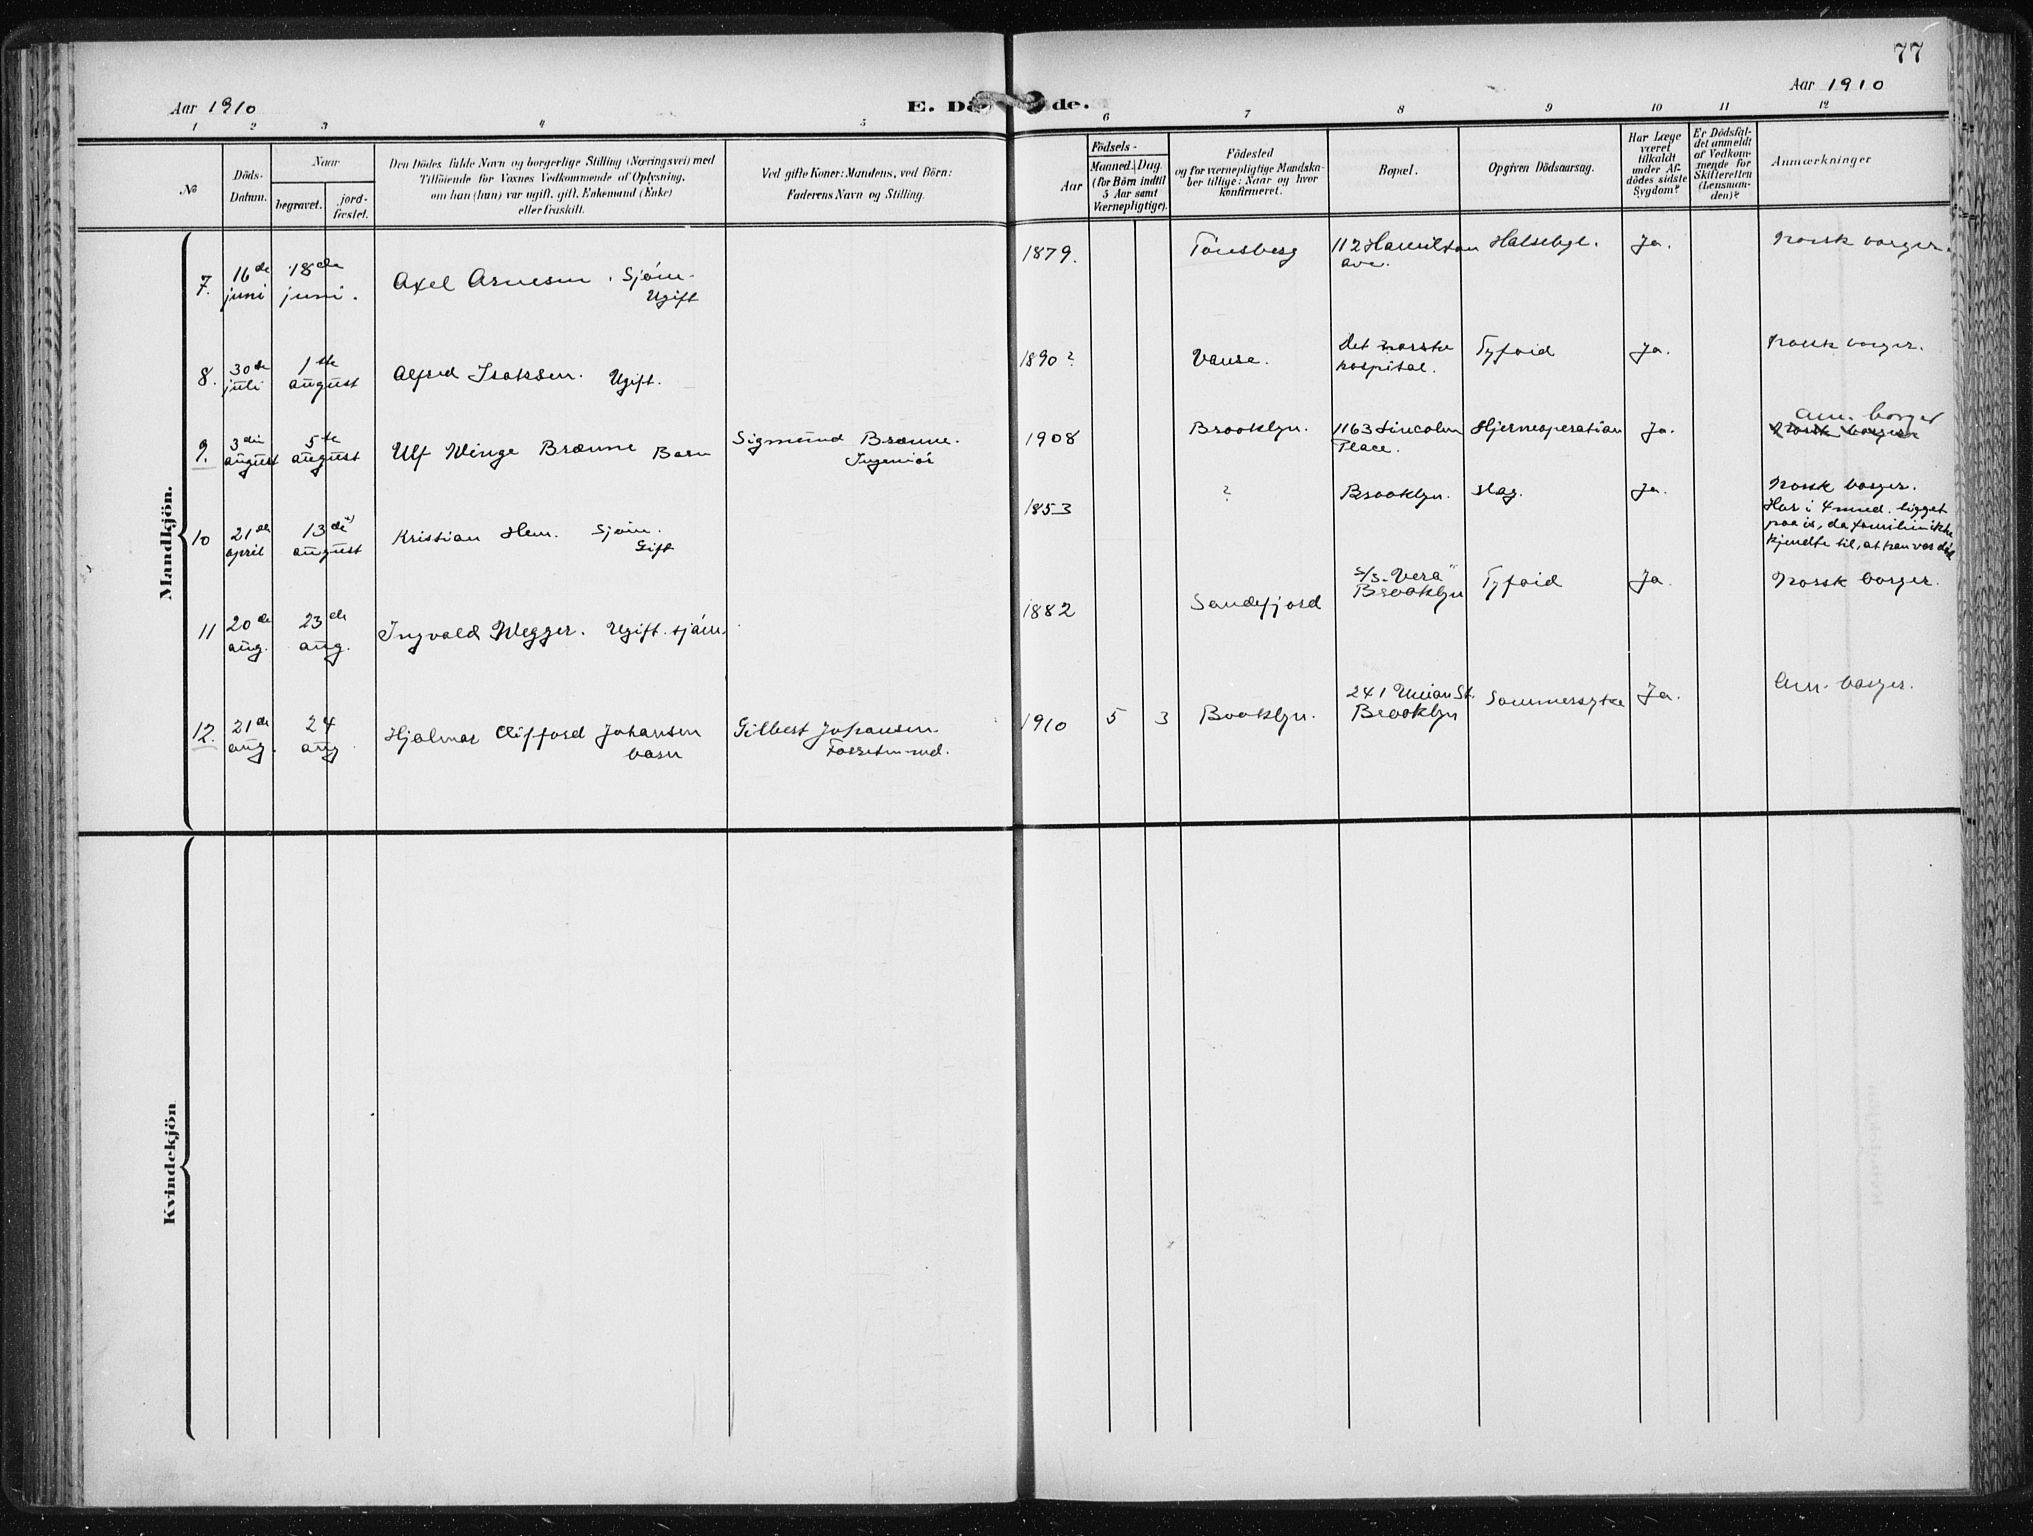 77
Aar 1910
E. Dö
de.
Aar 1910
1 2 3 4 5 6 7 8 9 10 11 12
No
Döds-
Datum.
Naar
begravet.
jord-
fæstet.
Den Dödes fulde Navn og borgerlige Stilling (Næringsvei) med
Tilföiende for Voxnes Vedkommende af Oplysning,
om han (hun) var ugift, gift, Enkemand (Enke)
eller fraskilt.
Ved gifte Koner: Mandens, ved Börn:
Faderens Navn og Stilling.
Födsels-
Aar
Maaned. Dag.
(for Börn indtil
5 Aar samt
Værnepligtige).
Födested
og for værnepligtige Mandska-
ber tillige: Naar og hvor
konfirmeret.
Bopæl.
Opgiven Dödsaarsag.
Har Læge
været
tilkaldt
under Af-
dödes sidste
Sygdom?
Er Dödsfal-
det anmeldt
af Vedkom-
mende for
Skifteretten
(Lensman-
den)?
Anmærkninger
Mandkjön.
7. 16de juni 18de juni. Axel Arnesen. Sjøm. Ugift 1879. Tønsberg 112 Hamilton ave. Halsebyl. Ja. Norsk borger.
8. 30de juli 1ste august Alfred Isaksen. Ugift. 1890? Vanse. Det norske hospital. Tyfoid Ja. Norsk borger.
9. 3die august 5te august Ulf Winge Brænne Barn Sigmund Brænne. Ingeniør 1908 Brooklyn. 1163 Lincoln Place. Hjerneoperation Ja. Am. borger
Norsk borger
10 21de april 13de august Kristian Hem. Sjøm. Gift 1853 ? Brooklyn. slag. Ja. Norsk borger.
Har i 4 mnd. ligget
paa is, da familien ikke
kjendte til, at han var død
11 20de aug. 23de aug. Ingvald Wegger. Ugift. sjøm. 1882 Sandefjord S/S "Vera" Brooklyn Tyfoid Ja. Norsk borger.
12. 21de aug. 24 aug Hjalmar Clifford Johansen barn Gilbert Johansen 1910 5 3 Booklyn. 241 Union St. Brooklyn Sommersyke Ja. Am. borger.
Kvindekjön